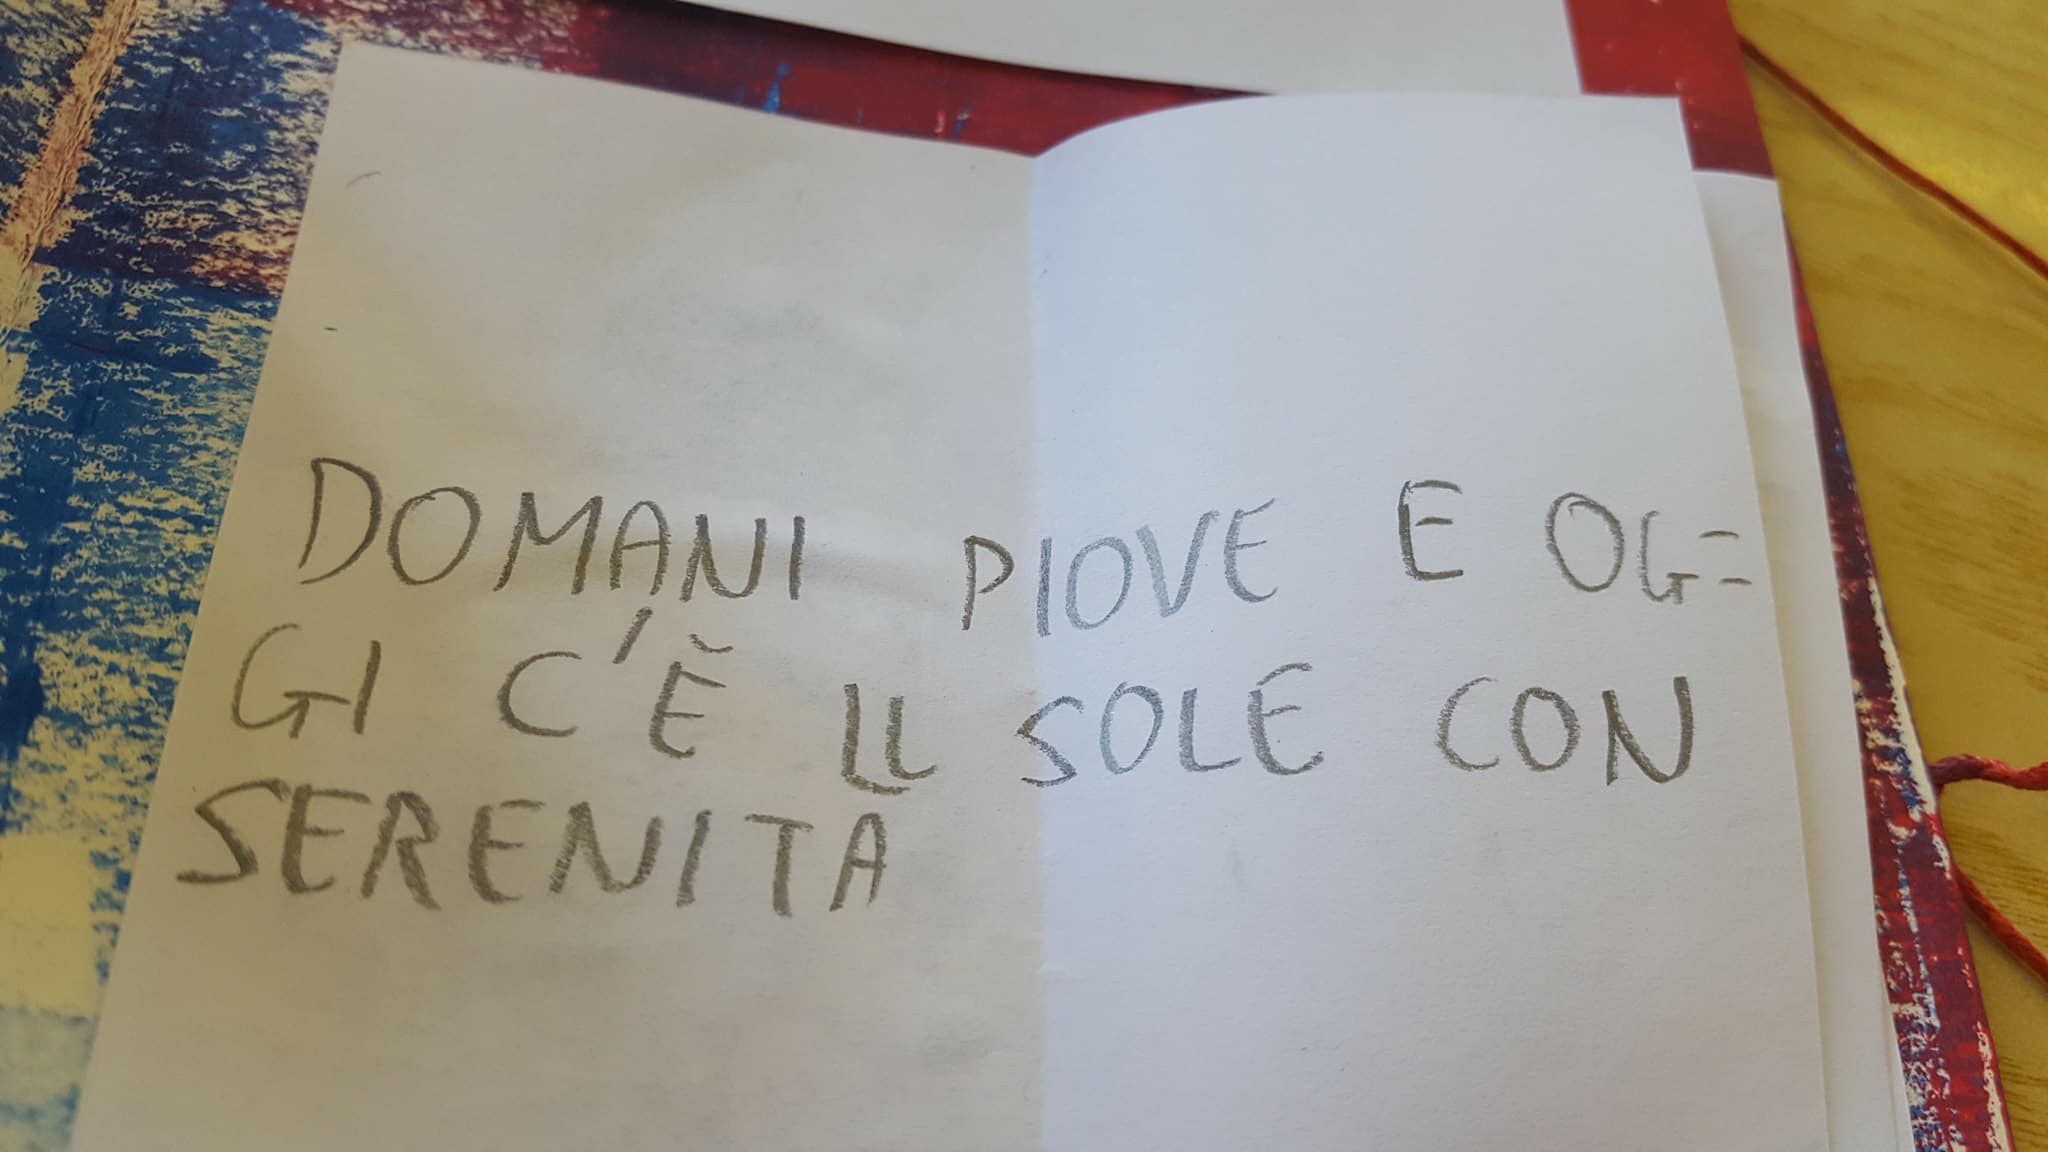 DOMANI PIOVE E OG=
GI C'È LL SOLE CON
SERENITA